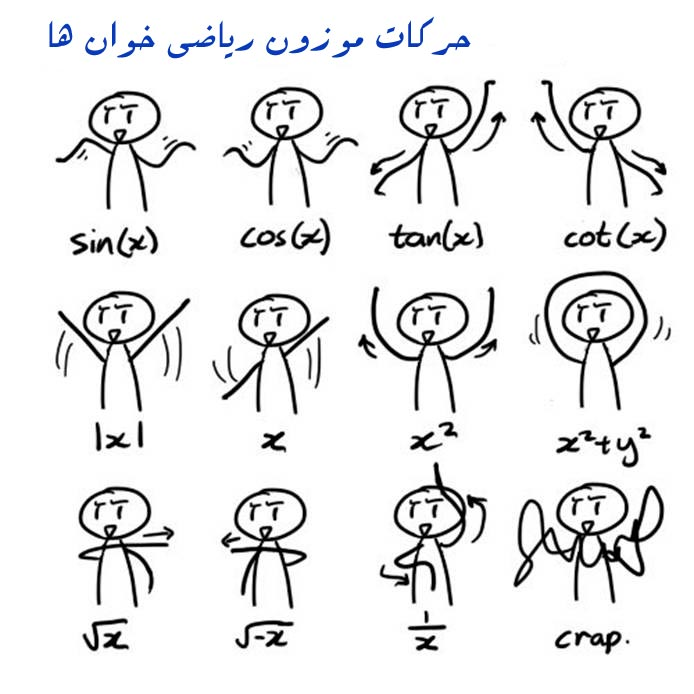 حرکات موزون ریاضی خوان ها
sin(x) cos(x) tan(x) cot(x)
|x| x x² x²+y²
√x √-x 1/x crap.